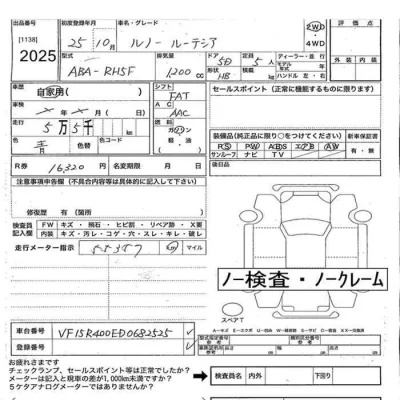 出品番号
[1138]
2025
初度登録年月
25年 10月
車名・グレード
ルノー ルーテシア
2WD・4WD
評価点
型式
ABA-RH5F
排気量
1,200 cc
ドア 5D
形状 HB
定員 5
積載 kg
ディーラー・並行
モデル年式
ハンドル 左・右
外装
内装
車歴
自家用
シフト
FAT
車検 年 月
AC
AAC
走行
5万5千
燃料
色
青
色コード
セールスポイント（正常に機能するものに限ります）
装備品（純正品に限り○をつけてください）
新車保証書
PS PW AW
サンルーフ ナビ TV
有・無
R券
16320円
名変期限 月 日
後日品
注意事項申告欄（不具合内容等は具体的に記入して下さい）
修復歴 有（箇所
検査員記入欄
FW キズ・飛石・ヒビ割・リペア跡・X要
内装 キズ・汚レ・コゲ・穴・スレ・キレ・破レ
走行メーター指示
55357
km マイル
ノー検査・ノークレーム
スペアT
車台番号
VF15R400ED0682525
登録番号
お疲れさまです
チェックランプ、セールスポイント等は正常でしたか？
メーターは記入と現車の差が1,000km未満ですか？
5ケタアナログメーターではありませんか？
検査員名
内外
下回り